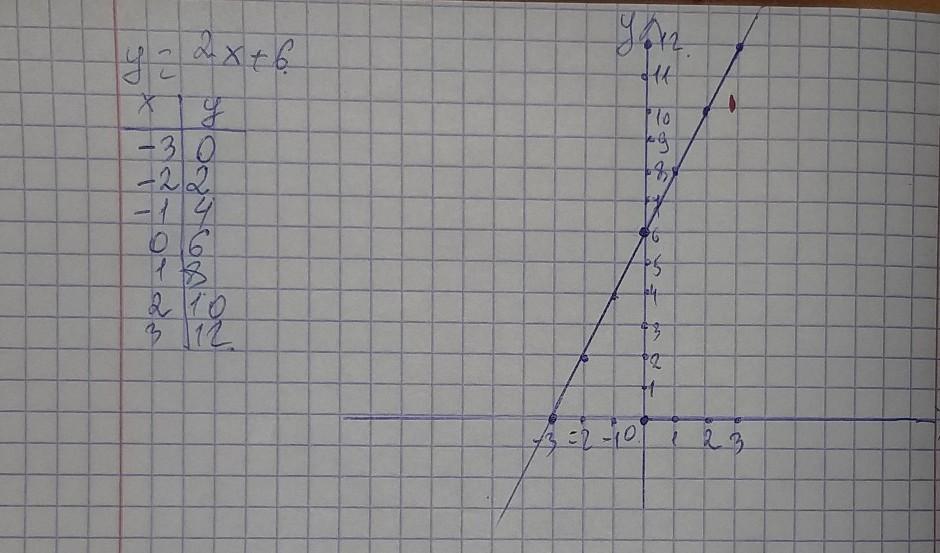 y = 2x+6
x y
-3 0
-2 2
-1 4
0 6
1 8
2 10
3 12
y 12
11
10
9
8
7
6
5
4
3
2
1
-3 -2 -1 0 1 2 3